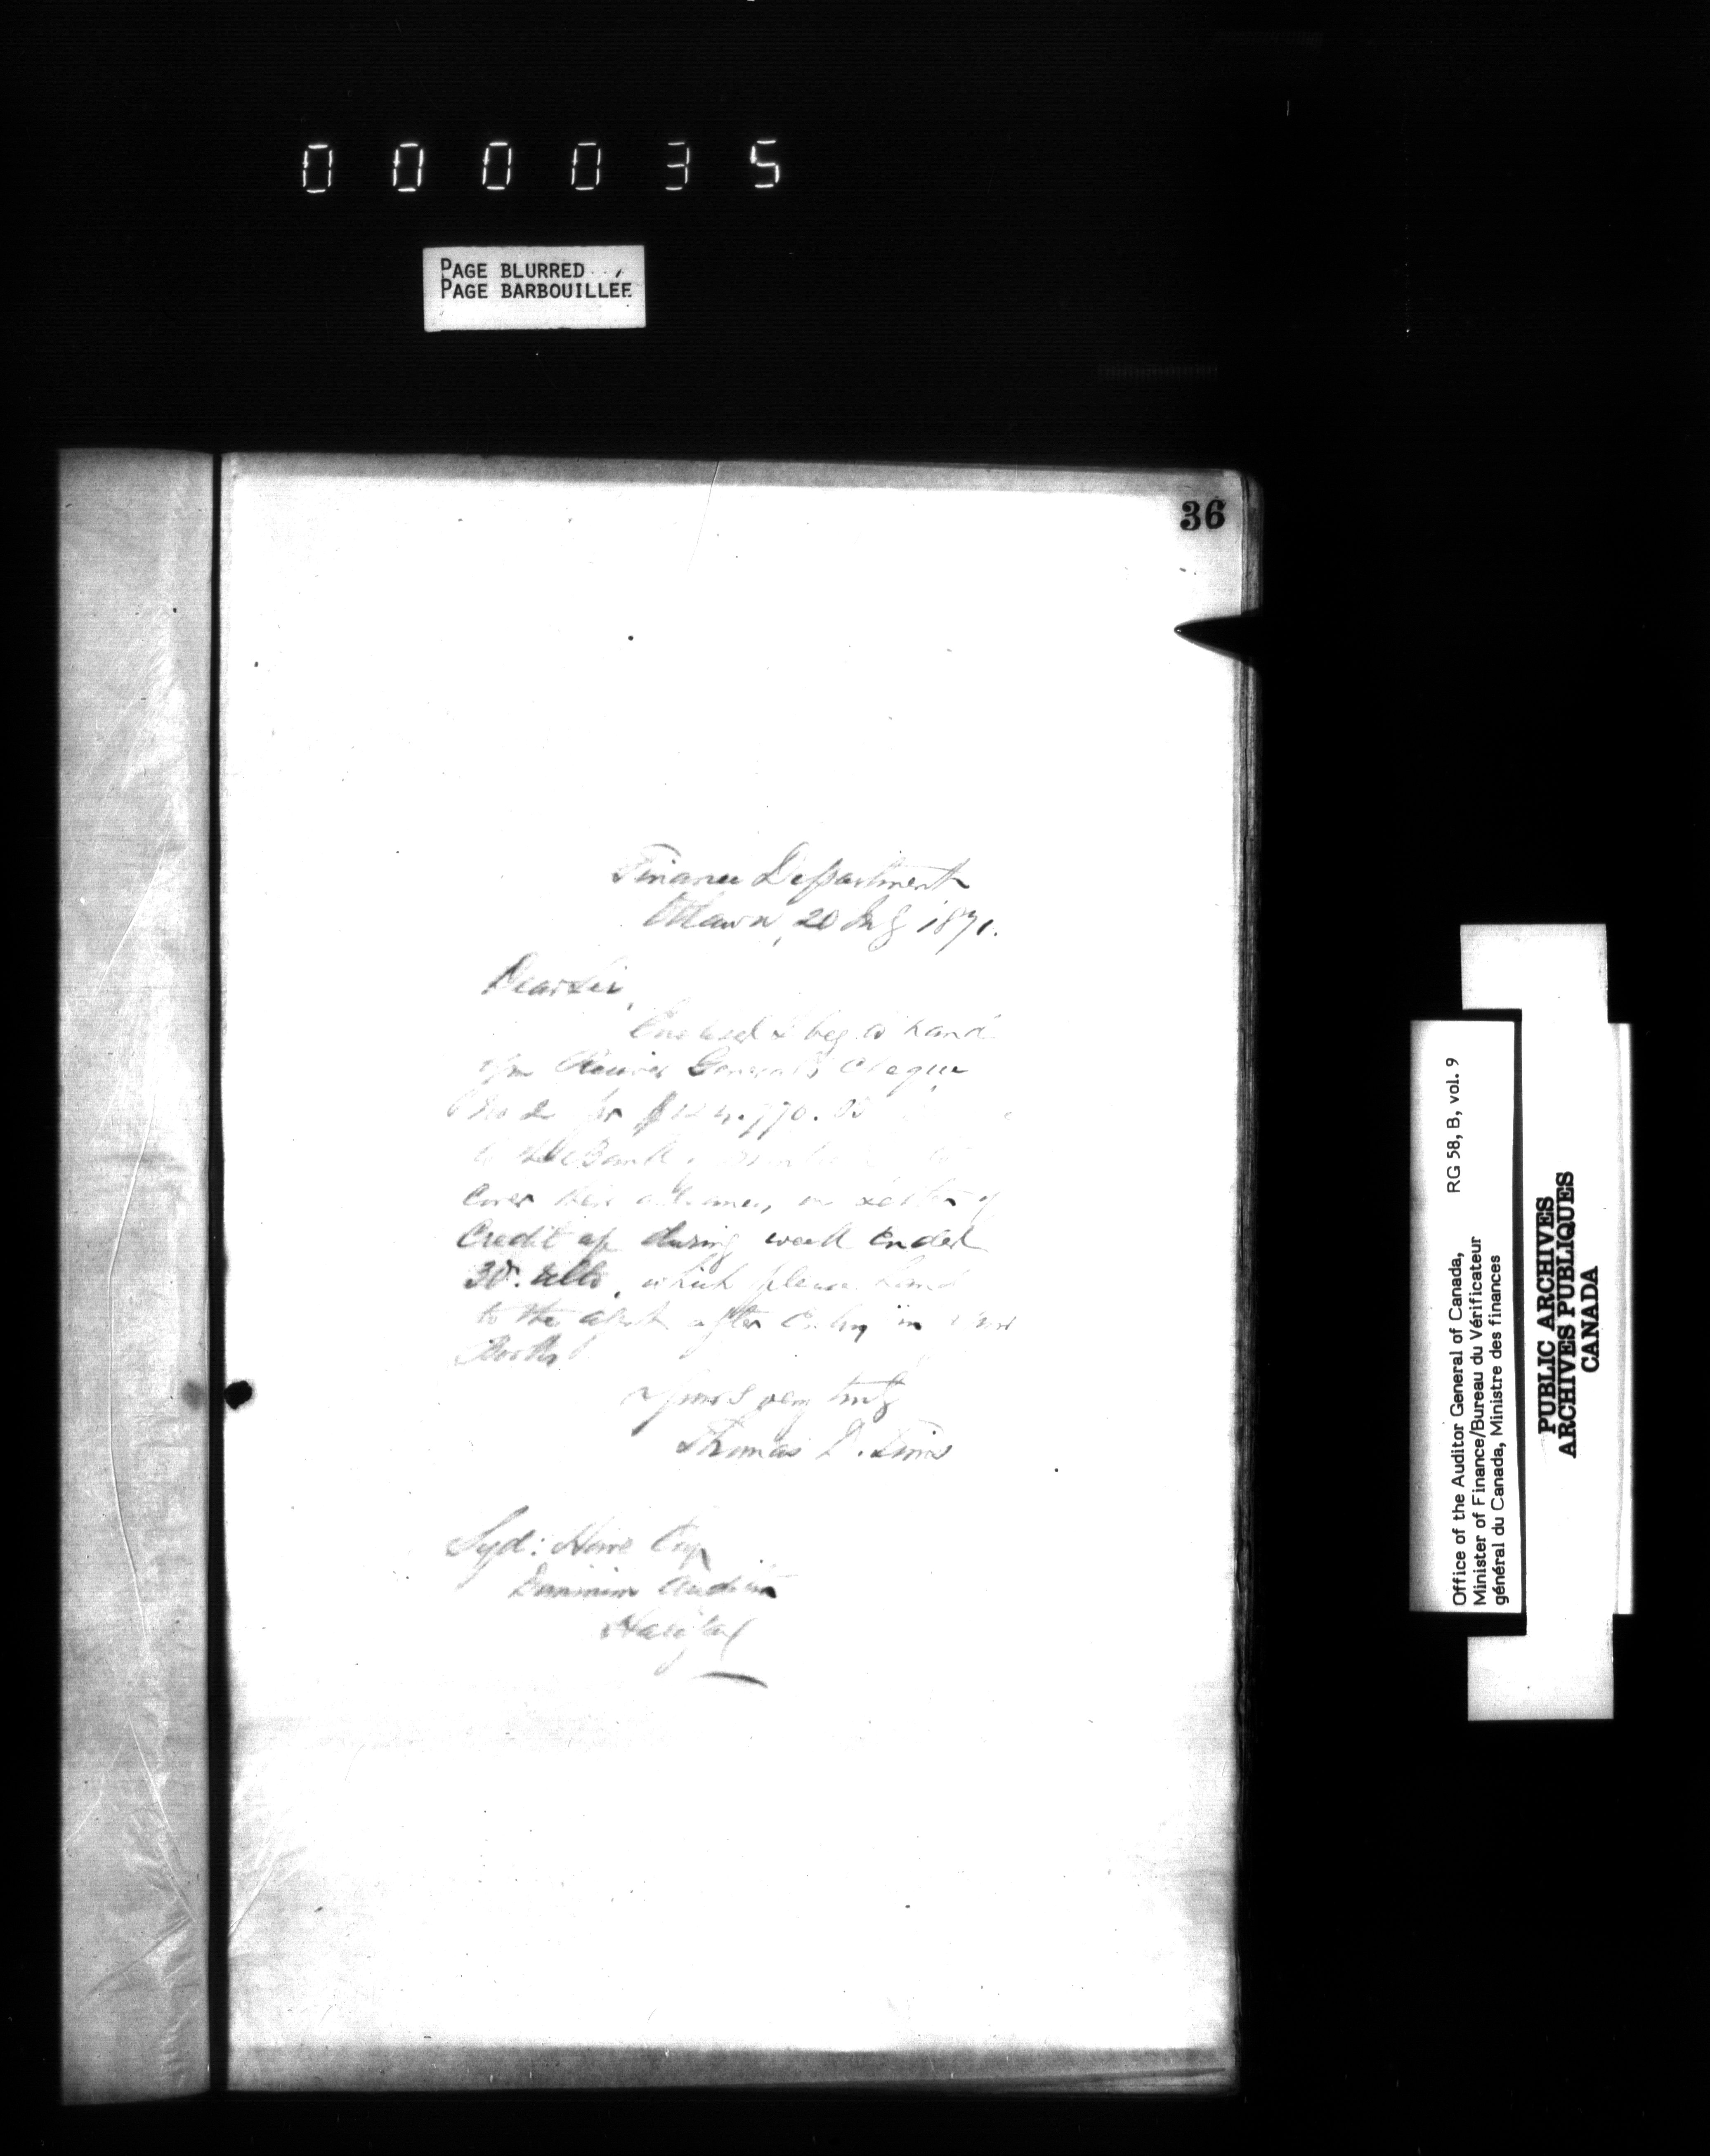 000035
PAGE BLURRED
PAGE BARBOUILLÉE
36
Finance Department
Ottawa, 20 July 1871.
Dear Sir,
Enclosed I beg to hand
you Receiver General's Cheque
No 2 for $124,770.
to the Bank of
cover their advances, on Letter of
Credit a/c during week ended
30th ulto, which please hand
to the agent after entry in your
Books.
Yours very truly
Thomas D. Tims
Syd: Howe Esq
Dominion Auditor
Halifax
Office of the Auditor General of Canada,
Minister of Finance/Bureau du Vérificateur
général du Canada, Ministre des finances
RG 58, B, vol. 9
PUBLIC ARCHIVES
ARCHIVES PUBLIQUES
CANADA